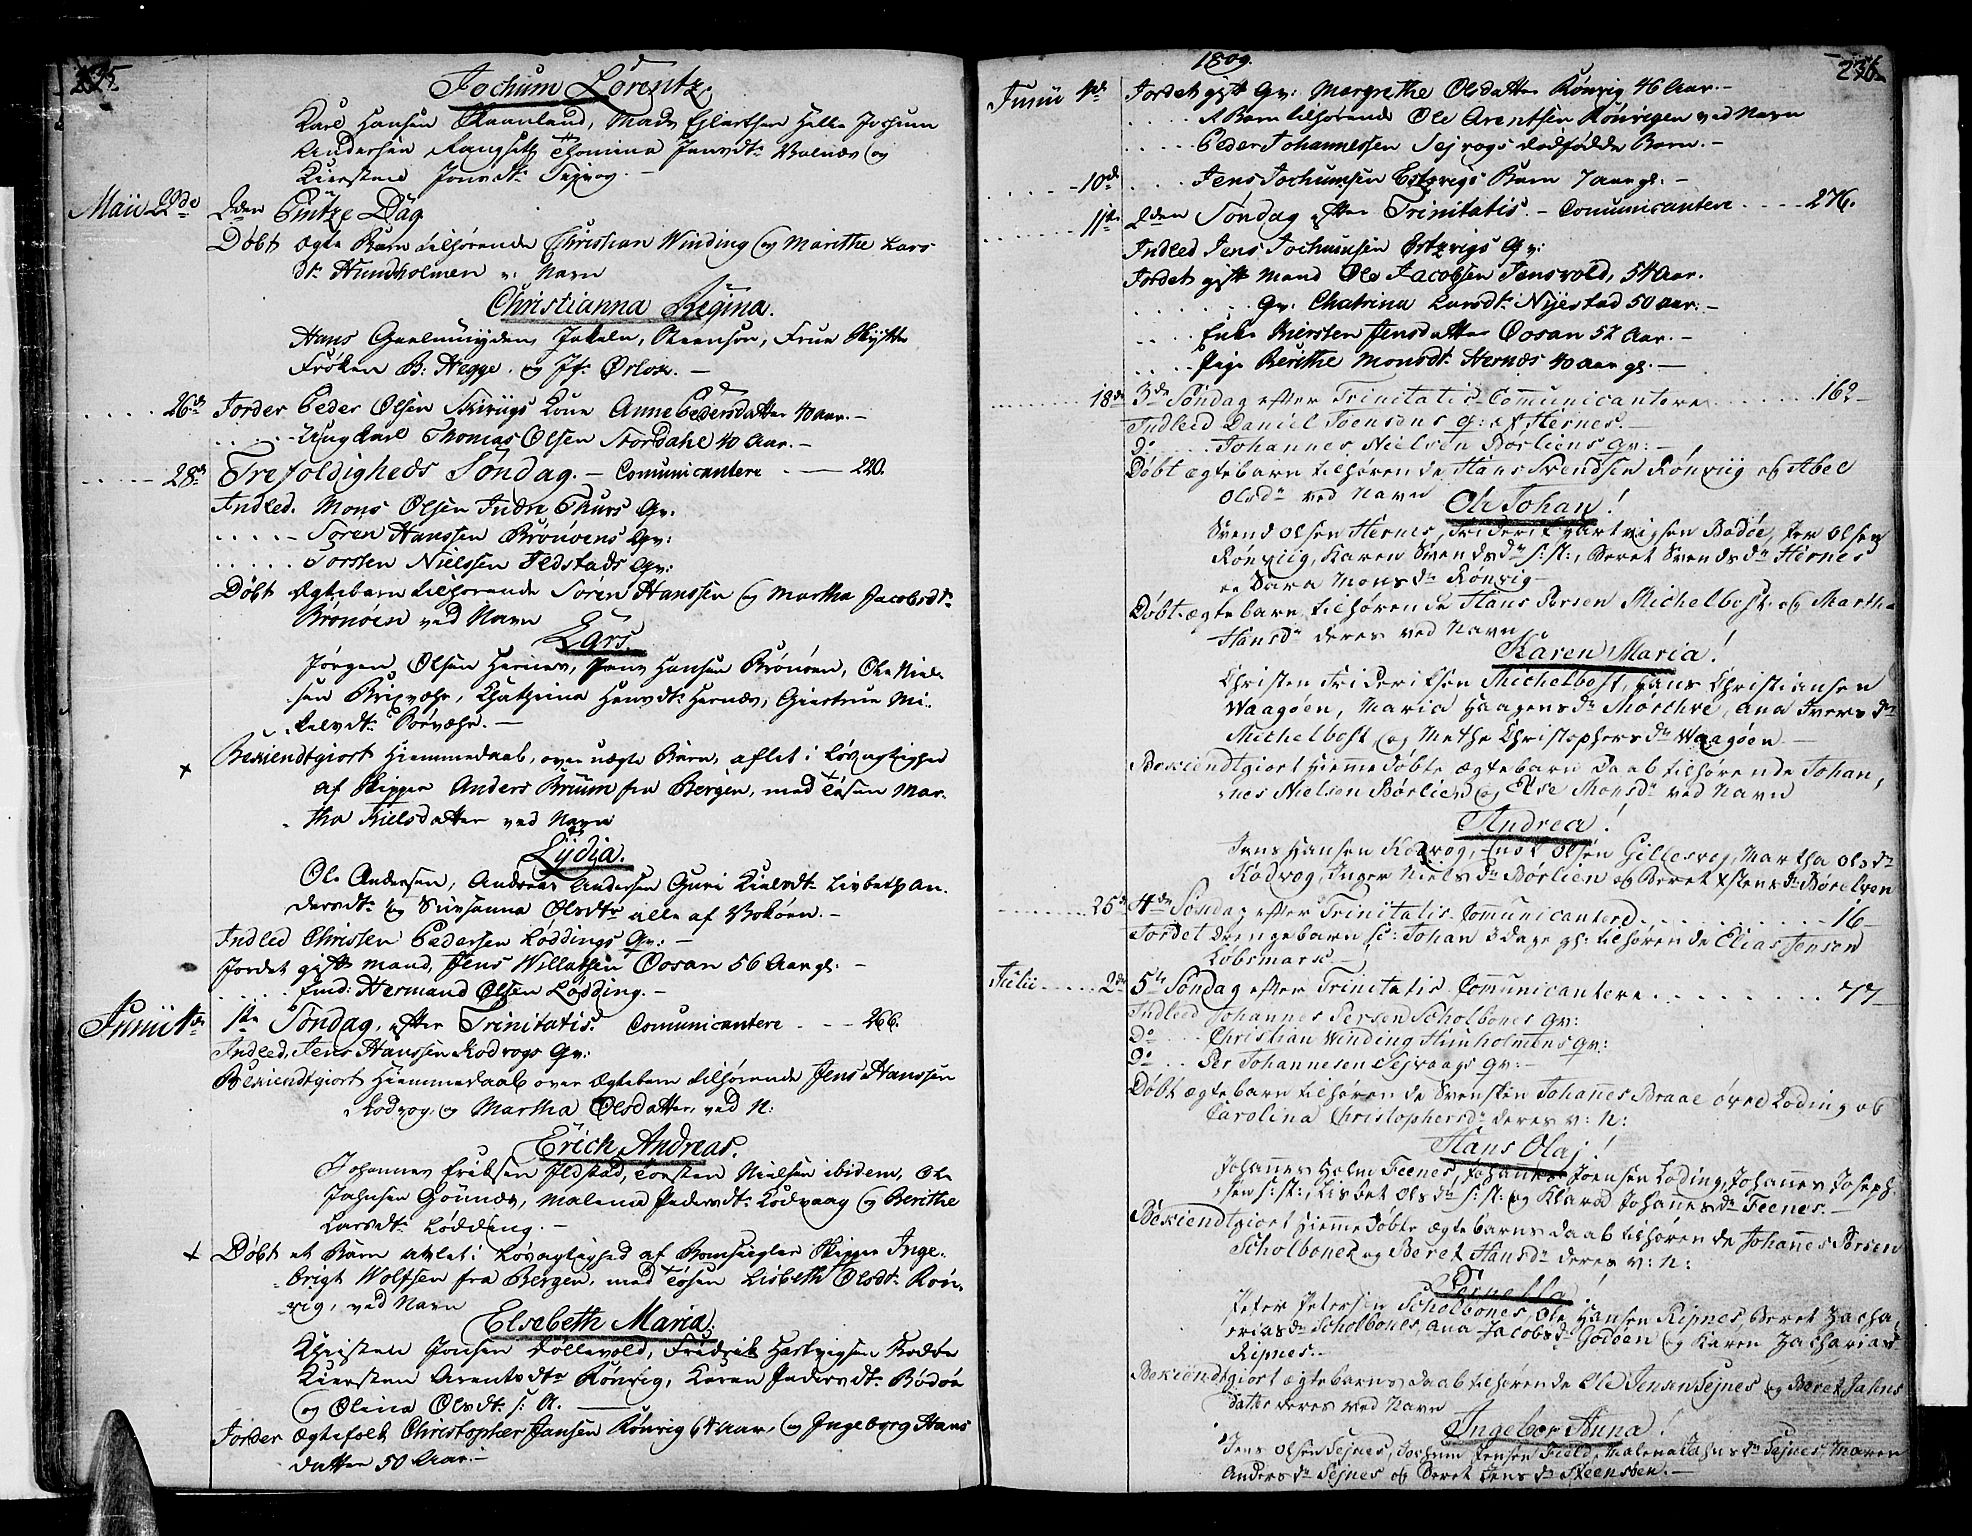 235
Jochum Lorentz.
Karl Hansen Skaanland, Mads Ejlertsen Helle Jochum
Andersen Langseth Thomina Jensdt: Valnæs og
Kiersten Jonsdt:
Maii 22de 2den Pintze Dag
Døbt ægte Barn tilhørende Christian Winding og Marithe Lars
dt: Hundholmen v: Navn
Christianna Regina.
Hans Geelmuyden, Jakeln, Steenson, Frue Skytte
Frøken B: Hegge. og Jf: Orlow. -
26de Jordet Peder Olsen Skivigs Kone Anne Pedersdatter 40 aar. -
Ung Karl Thomas Olsen Nordahl 40 Aar. -
28de Trefoldigheds Søndag. - Comunicantere . - 220.
Indled. Mons Olsen Indre Thuvs Gv:
Søren Hanssen Brønøens Gv:
Torsten Nielssen Ildstads Gv:
Døbt Ægtebarn tilhørende Søren Hanssen og Martha Jacobsdt:
Brønøen ved Navn
Lars.
Jørgen Olsen Hernes, Jens Hansen Brønøen, Ole Niel-
sen Brixvær, Chathrina Hansdt: Hernæs, Giertrue Mi-
kelsdt: -
+ Bekiendtgiort Hiemmedaab, over uægte Barn, aflet i Løsagtighed
af Skipper Anders Bruun fra Bergen, med Tøsen Mar-
tha Kielsdatter ved Navn
Lydia.
Ole Andersen, Andreas Andersen Guri Kielsdt: Lisbeth An-
dersdt: og Susanna Olsdtr alle af Bokøen. -
Indled Christen Pedersen Løddings Gv: -
Jordet gift Mand, Jens Willatsen Oosan 56 Aar gl: -
Hermand Olsen Lødding. -
Junii 4de 1ste Søndag, efter Trinitatis. Comunicantere . - - 266.
Indled. Jens Hanssen Kodvogs Gv:
Bekiendtgiort Hiemmedaab over Ægtebarn tilhørende Jens Hanssen
Kodvog og Martha Olsdatter, ved N:
Erich Andreas.
Johannes Eriksen Ildstad, Torsten Nielsen ibidem, Ole
Johnsen Gønnæs, Malena Pedersdt: Kodvaag og Berithe
Larsdt: Lødding. -
+ Døbt et Barn avlet i Løsagtighed af Skipper Inge-
brigt Wolfsen fra Bergen, med Tøsen Lisbeth Olsdt: Røn-
vig, ved Navn
Elsebeth Maria.
Christen Jonsen Løllevold, Fredrik Hartvigsen Bodøe
Kiersten Arentsdtr Rønvig, Karen Pedersdt: Bodøe
og Olina Olsdt: s: st. -
Jordet Ægtefolk Christopher Jansen Rønvig 64 Aar, og Ingeborg Hans
datter 50 Aar. -
1809.
236
Junii 4de Jordet gift Qv: Margrethe Olsdatter Rønvig 46 Aar. -
1 Barn tilhørende Ole Arentsen Rønvigen ved Navn
Peder Johannessen Sejvogs dødfødde Barn. -
10de Jens Jochumsen Estevigs Barn 7 aar gl: -
11te 2den Søndag efter Trinitatis. - Comunicantere . . . 276.
Indled Jens Jochumsen Estevigs Qv:
Jordet gift Mand Ole Jacobsen Jensvold, 54 Aar.
Qv: Chatrina Larsdt: Nyestad 50 aar. -
Enke Kiersten Jensdatter Oosan 52 Aar. -
Pige Berithe Monsdt. Hernæs 40 aar gl: -
18de 3de Søndag efter Trinitatis Communicantere . . . 162
Indleed Daniel Joensens Q: af Hernes. -
do Johannes Nielsen Børliens Qv: -
Døbt ægtebarn tilhørende Hans Svendsen Rønviig og Abel
Olsdr ved Navn
Ole Johan!
Svend Olsen Hernes, Friderik Hartvigsen Bodøe, Per Olsen
Rønviig, Karen Svendsdr s: st:, Beret Svendsdr Hernes
og Sara Monsdr Rønvig -
Døbt ægtebarn tilhørende Hans Persen Michelbost og Marth-
Hansdr deres ved Navn
Karen Maria!
Christen Frideriksen Michelbost, Hans Christiansen
Waagøen, Maria Haagensdr Mørchve, Ana Iversdr
Michelbost og Methe Christophersdr Waagøen -
Bekiendtgiort Hiemmedøbte ægtebarn Daab tilhørende Johan-
nes Nielsen Børlien og Else Monsdr ved Navn
Andrea!
Jens Hansen Kodvog, Knut Olsen Gillesvog, Martha Olsdr
Kodvog, Inger Nielsdr Børlien og Beret Østensdr Børelven
25de 4de Søndag efter Trinitatis. Communicantere . . . 16
Jordet Drengebarn s: Johan 3 dage gl: tilhørende Elias Jensen
Løbsmark -
Julii 2de 5te Søndag efter Trinitatis. Communicantere . . . 77
Indleed Johannes Persen Scholbones Qv:
do Christian Winding Hunholmens Qv:
do Per Johannesen Sejvaags Qv: -
Døbt ægtebarn tilhørende Svensken Johanes Braae øvre Loding og
Carolina Christophersdr deres v: N:
Hans Olaj!
Johannes Holm Feenes, Johannes Joensen Loding, Johannes Joseph-
sen s: st:, Lisbet Olsdr s: st: og Klara Johannesdr Feenes. -
Bekiendtgiort Hiemmedøbte ægtebarns Daab tilhørende Johannes Persen
Scholbones og Beret Hansdr deres v: N:
Pernella!
Peter Petersen Scholbones, Ole Hansen Ripnes, Beret Zacha-
riasdr Scholbones, Ana Jacobsdr Godøen og Karen Zacharias
Ripnes. -
Bekiendtgiort ægtebarns Daab tilhørende Ole Jensen Sejnes og Beret Jahns
datter deres ved Navn
Ingeber Anna!
Jens Olsen Sejnes, Jochum Jensen Field, Malena Jahnsdr Sejnes, Maren
Andersdr Sejnes og Beret Jensdr Steensøen. -